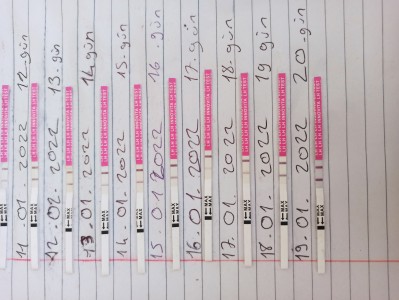 11.01.2022 12.gün
12.02.2022 13.gün
13.01.2022 14.gün
14.01.2022 15.gün
15.01.2022 16.gün
16.01.2022 17.gün
17.01.2022 18.gün
18.01.2022 19 gün
19.01.2022 20.gün
MAX
MAX
MAX
MAX
MAX
MAX
MAX
MAX
MAX